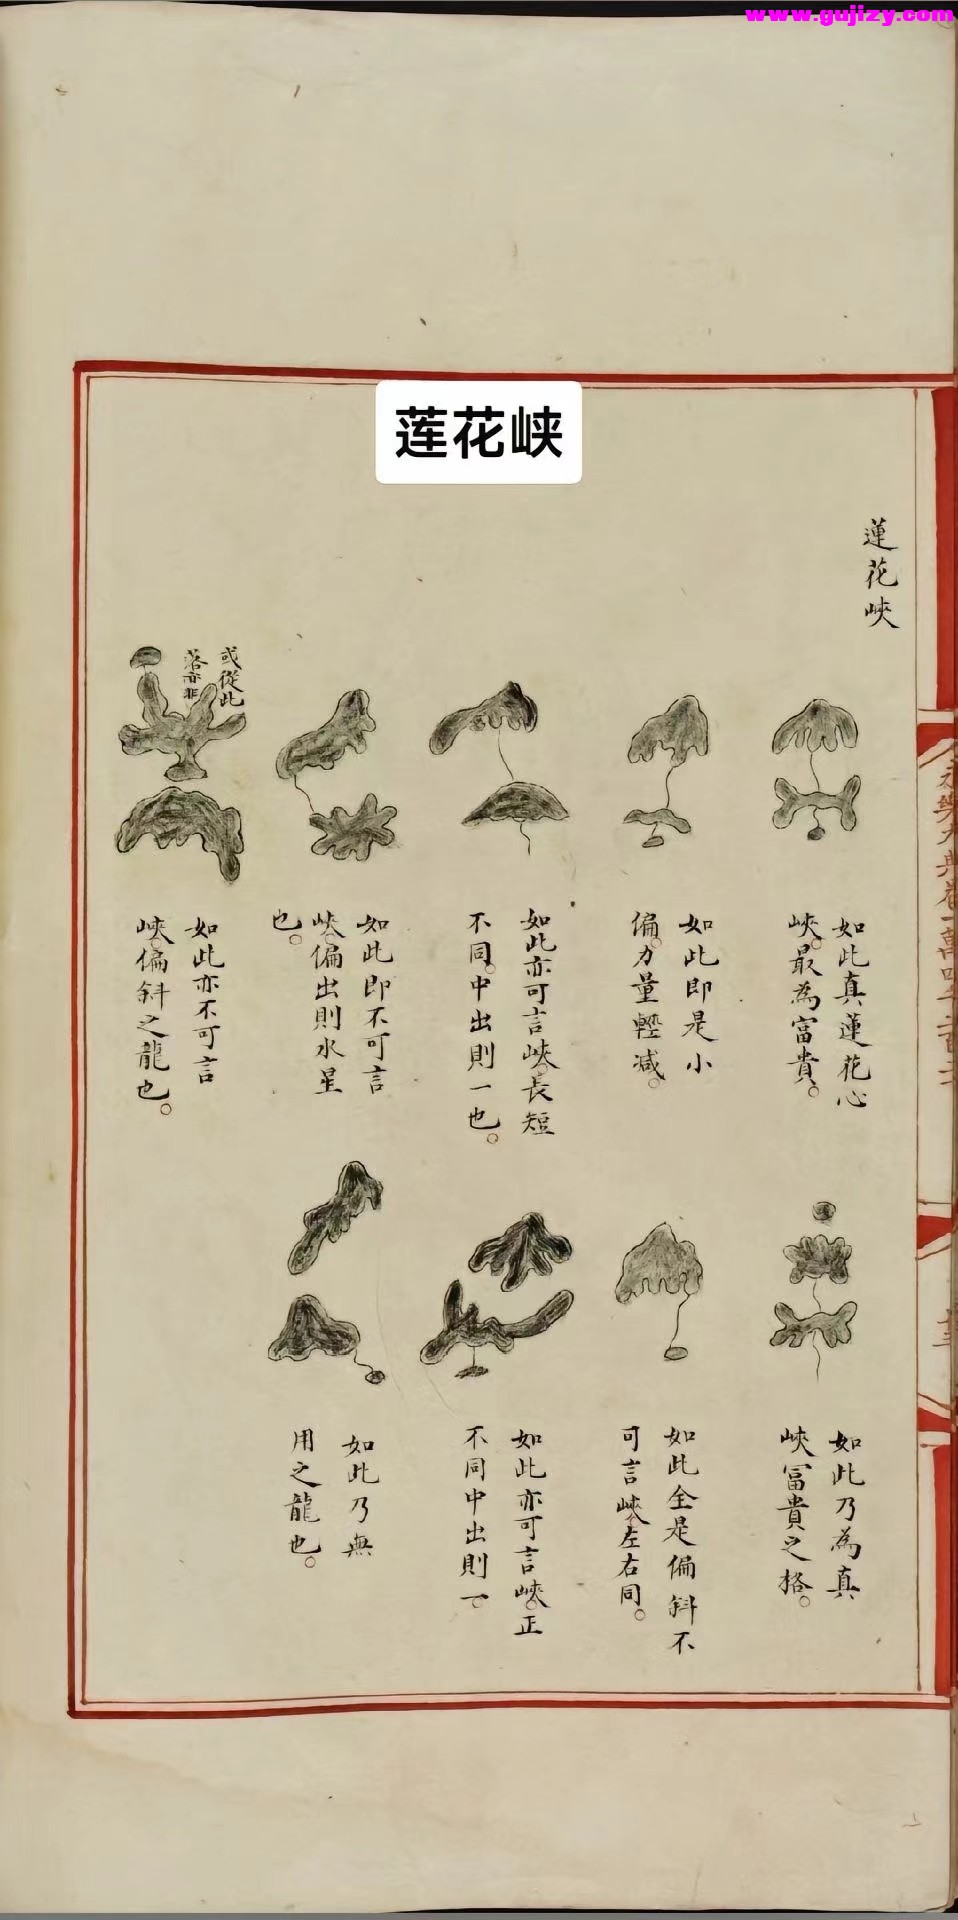 www.gujizy.com
莲花峡
蓮花峽
如此真蓮花心
峽。最為富貴。
如此即是小
偏。力量輕减。
如此亦可言峽。長短
不同。中出則一也。
如此即不可言
峽。偏出則水星
也。
或從此
落亦非
如此亦不可言
峽。偏斜之龍也。
如此乃為真
峽冨貴之格。
如此全是偏斜不
可言峽。左右同。
如此亦可言峽。正
不同中出則一。
如此乃無
用之龍也。
永樂大典卷一萬四千二百